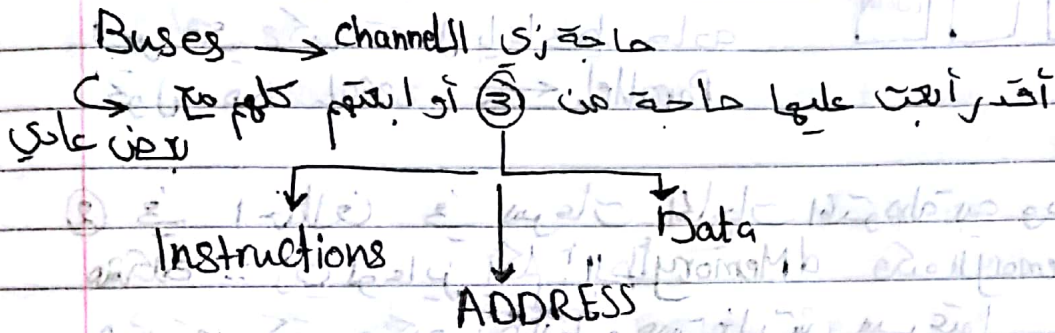 Buses → حاجة زي الـ channel
أقدر أبعت عليها حاجة من ③ أو ابعتهم كلهم مع
بعض عادي
Instructions
Data
ADDRESS